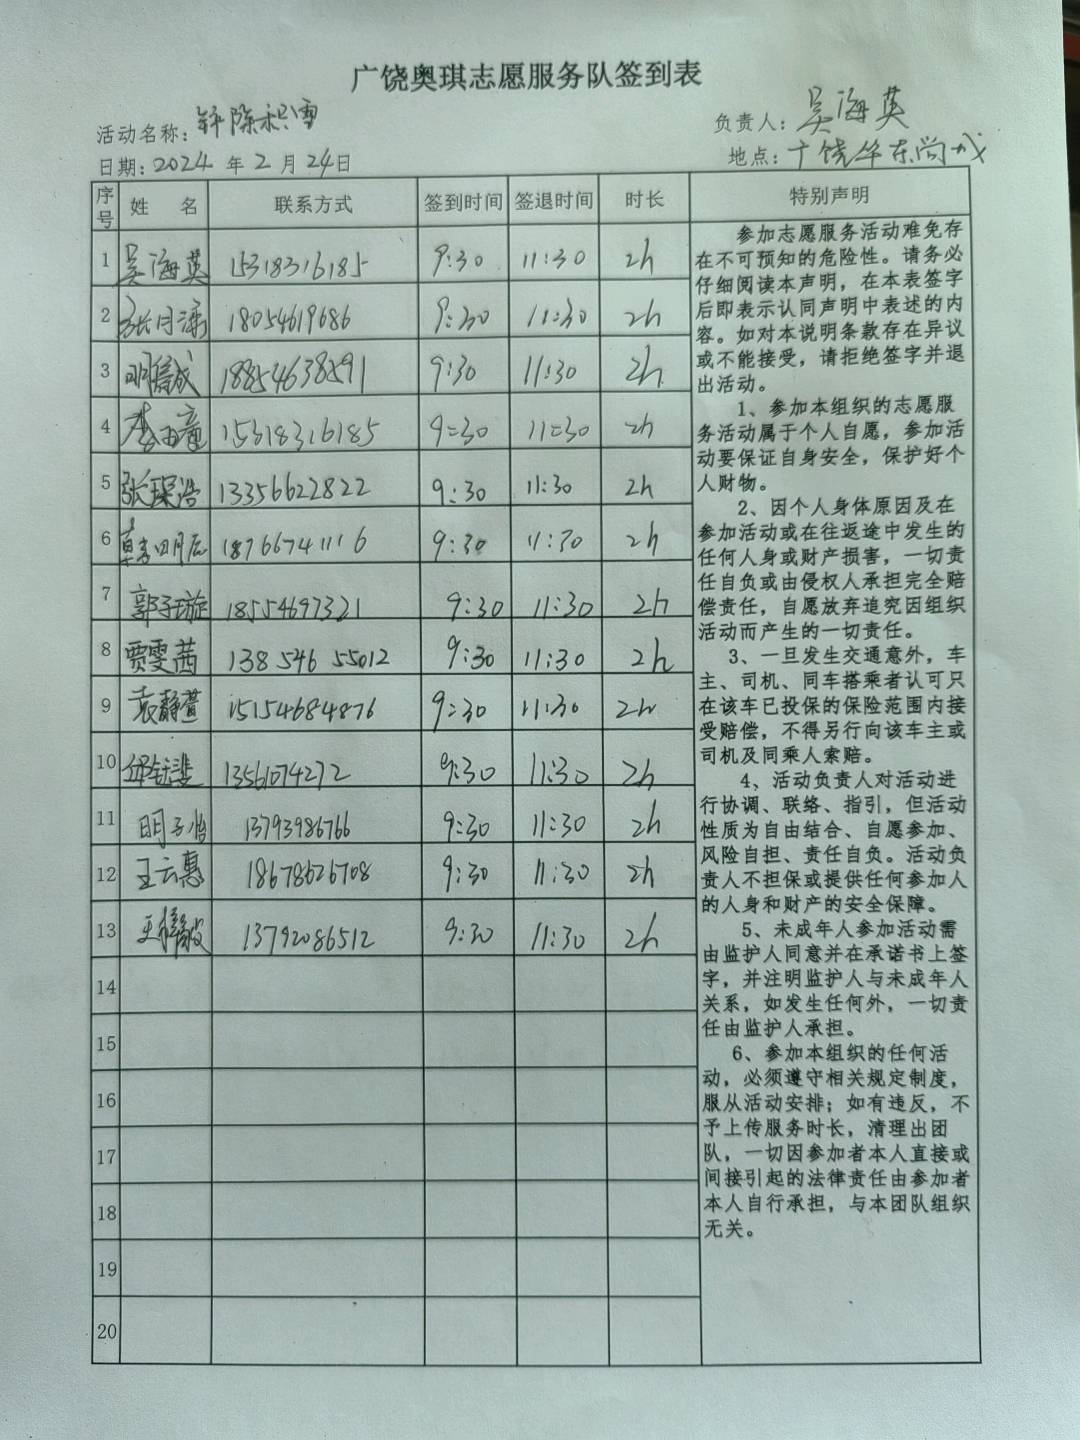 广饶奥琪志愿服务队签到表
活动名称：铲除积雪
负责人：吴海英
日期：2024 年 2 月 24日
地点：广饶华东尚城
序号 姓 名 联系方式 签到时间 签退时间 时长 特别声明
1 吴海英 15318316185 9:30 11:30 2h
2 18054619686 9:30 11:30 2h
3 明信成 18854638591 9:30 11:30 2h
4 李雨童 15318316185 9:30 11:30 2h
5 张琛浩 13356622822 9:30 11:30 2h
6 18766741116 9:30 11:30 2h
7 郭子璇 18554697321 9:30 11:30 2h
8 贾雯茜 138 546 55012 9:30 11:30 2h
9 袁静萱 15154684876 9:30 11:30 2h
10 13561074272 9:30 11:30 2h
11 明子怡 13793986766 9:30 11:30 2h
12 王云惠 18678626708 9:30 11:30 2h
13 13792086512 9:30 11:30 2h
14
15
16
17
18
19
20
参加志愿服务活动难免存
在不可预知的危险性。请务必
仔细阅读本声明，在本表签字
后即表示认同声明中表述的内
容。如对本说明条款存在异议
或不能接受，请拒绝签字并退
出活动。
1、参加本组织的志愿服
务活动属于个人自愿，参加活
动要保证自身安全，保护好个
人财物。
2、因个人身体原因及在
参加活动或在往返途中发生的
任何人身或财产损害，一切责
任自负或由侵权人承担完全赔
偿责任，自愿放弃追究因组织
活动而产生的一切责任。
3、一旦发生交通意外，车
主、司机、同车搭乘者认可只
在该车已投保的保险范围内接
受赔偿，不得另行向该车主或
司机及同乘人索赔。
4、活动负责人对活动进
行协调、联络、指引，但活动
性质为自由结合、自愿参加、
风险自担、责任自负。活动负
责人不担保或提供任何参加人
的人身和财产的安全保障。
5、未成年人参加活动需
由监护人同意并在承诺书上签
字，并注明监护人与未成年人
关系，如发生任何外，一切责
任由监护人承担。
6、参加本组织的任何活
动，必须遵守相关规定制度，
服从活动安排；如有违反，不
予上传服务时长，清理出团
队，一切因参加者本人直接或
间接引起的法律责任由参加者
本人自行承担，与本团队组织
无关。